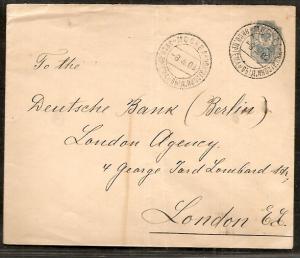 To the
Deutsche Bank (Berlin)
London Agency.
4 George Yard Lombard Str.
London E.C.